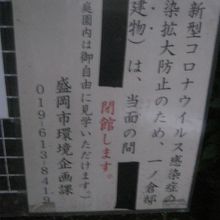 新型コロナウイルス感染症の
染拡大防止のため、一ノ倉邸
建物）は、当面の間
閉館します。
庭園内は御自由に見学いただけます）
盛岡市環境企画課
019-613-8419